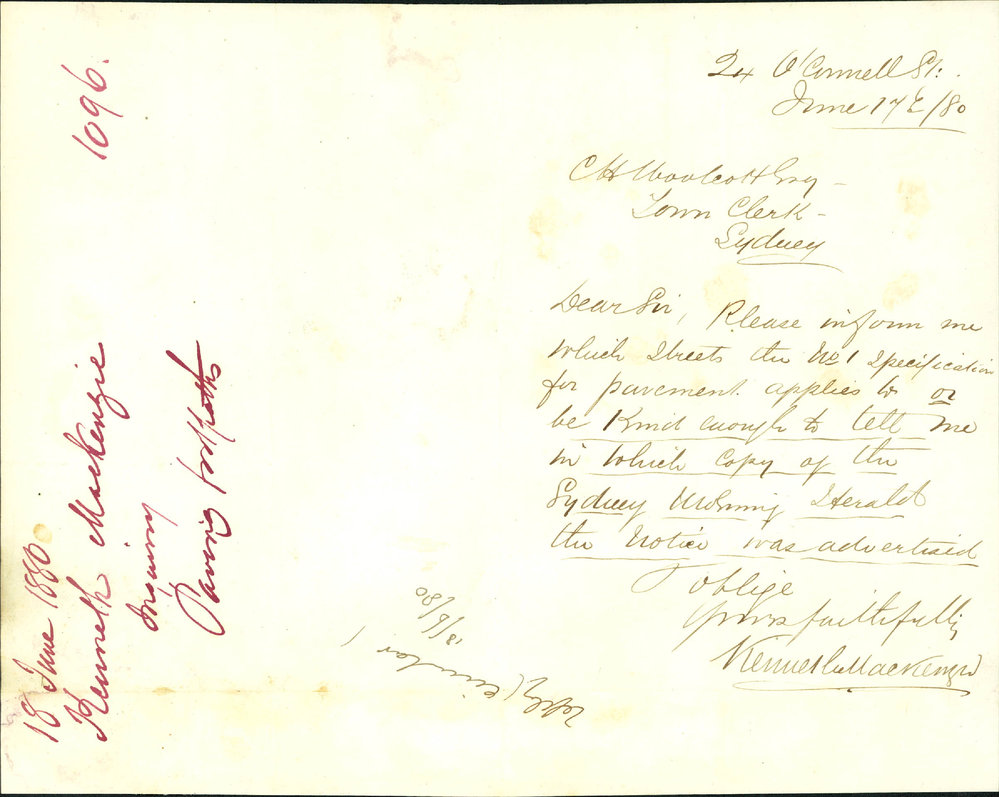 24 O'Connell St:
June 17th/80
C H Woolcott Esq
Town Clerk
Sydney
Dear Sir, Please inform me
which Streets the No 1 Specification
for pavement applies to or
be Kind enough to tell me
in which copy of the
Sydney Morning Herald
the Notice was advertised
& oblige
Yours faithfully
Kenneth Mackenzie
1096.
18 June 1880
Kenneth Mackenzie
Inquiry
Paving footpaths
reply (circular)
18/6/80